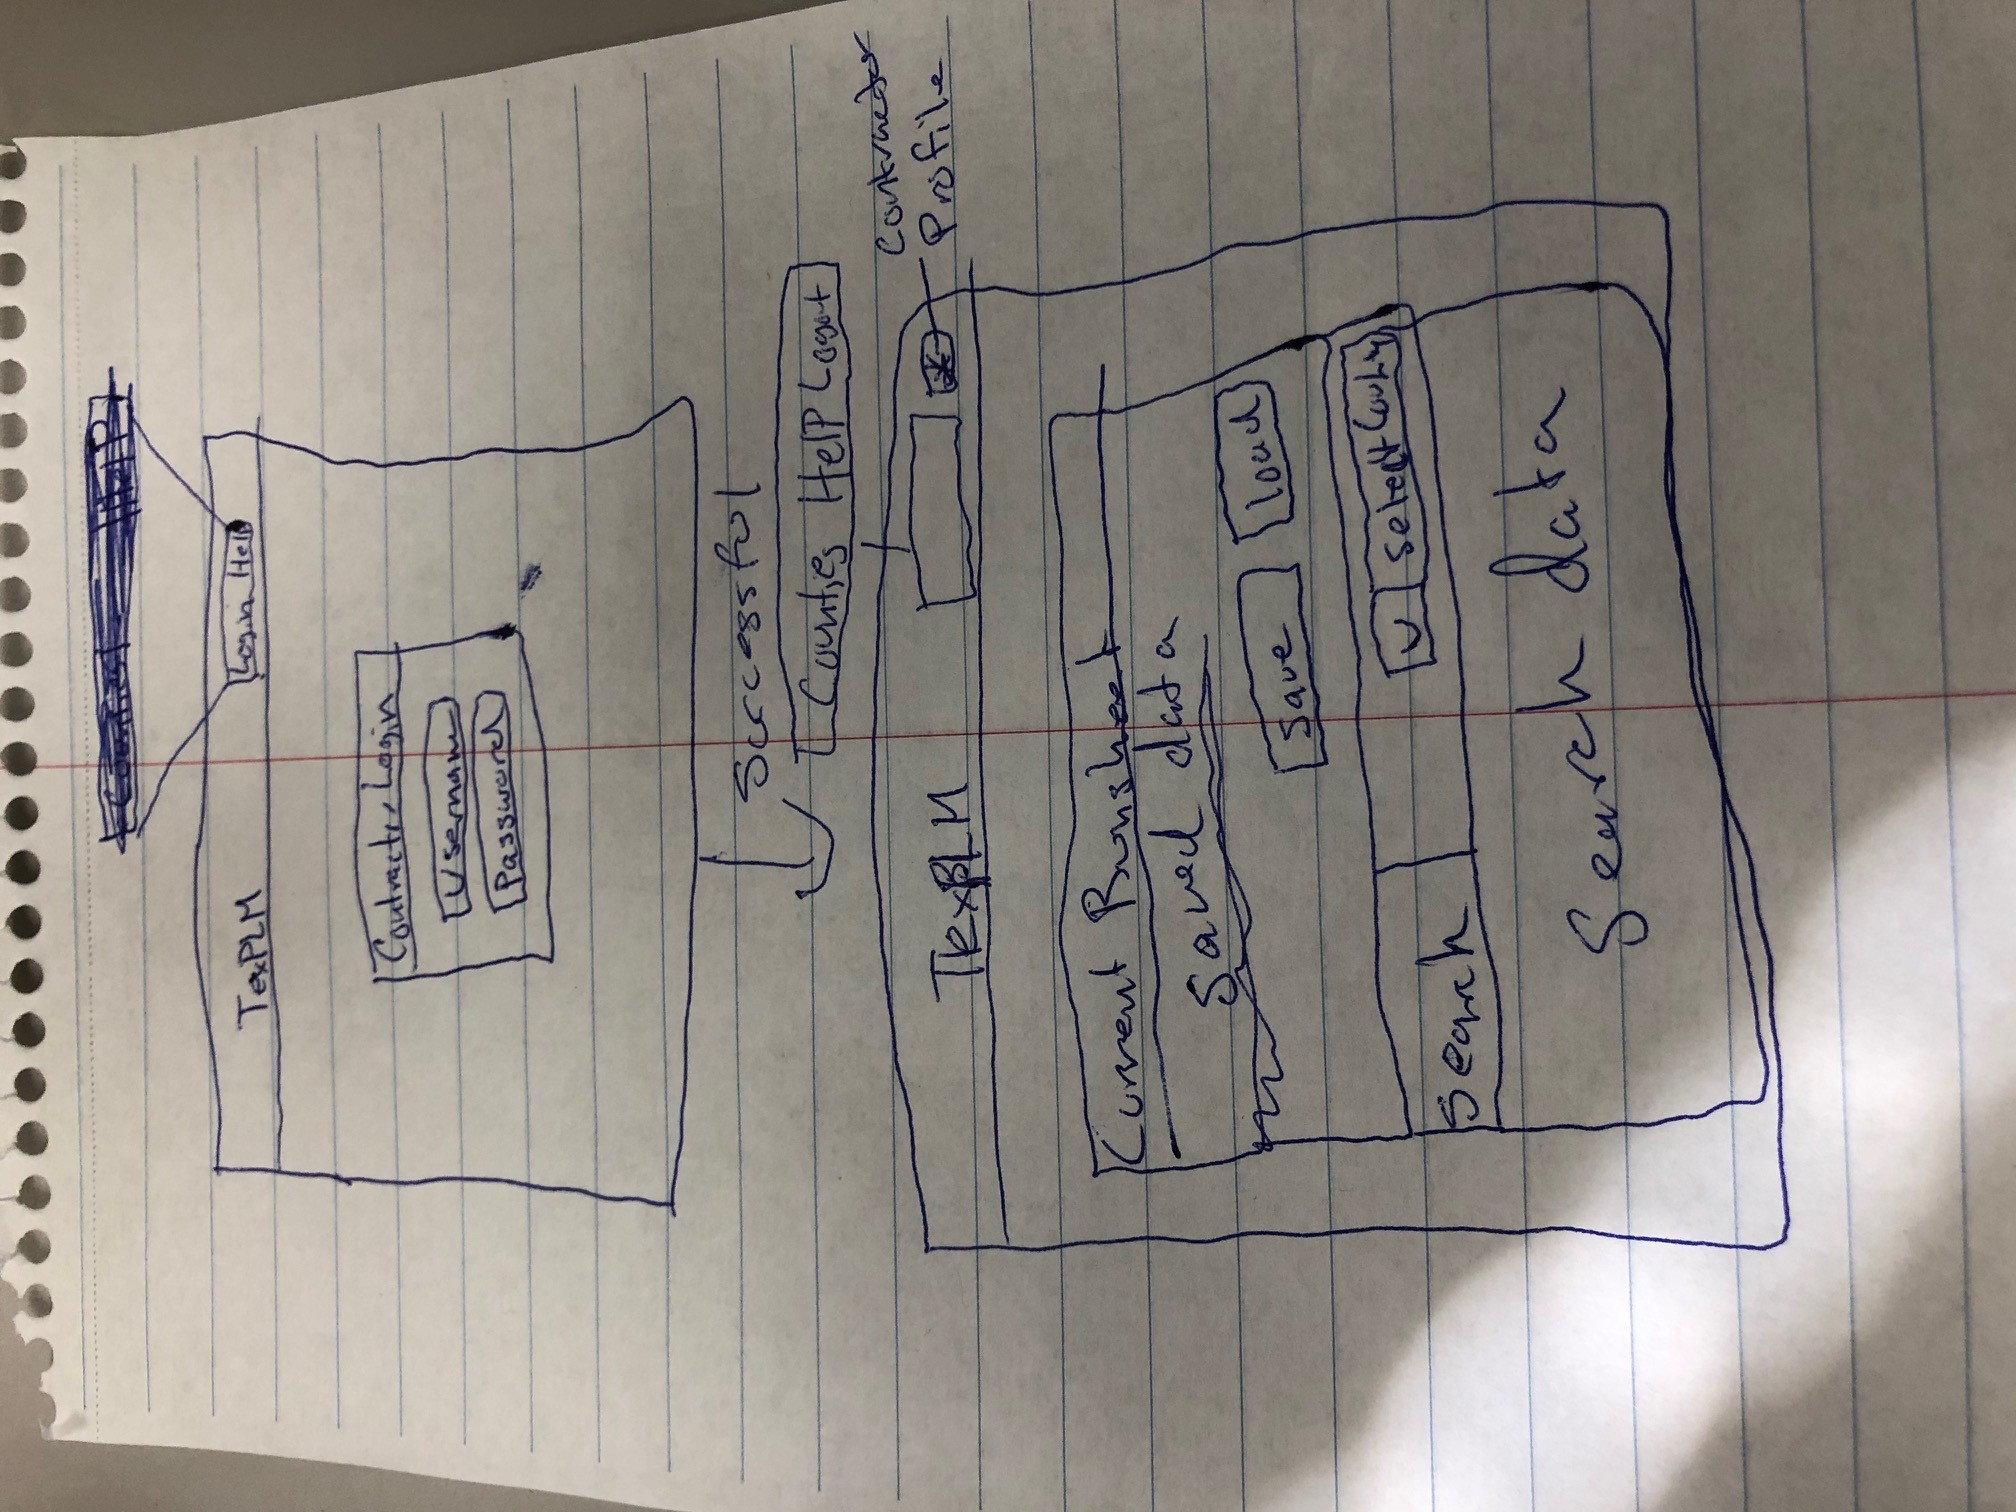 Login Help
TexPLM
Contractr Login
Username
Password
Successful
Counties Help Logout
Contractor
Profile
TexPLM
Current Runsheet
Saved data
Save
load
V
select County
Search
Search data